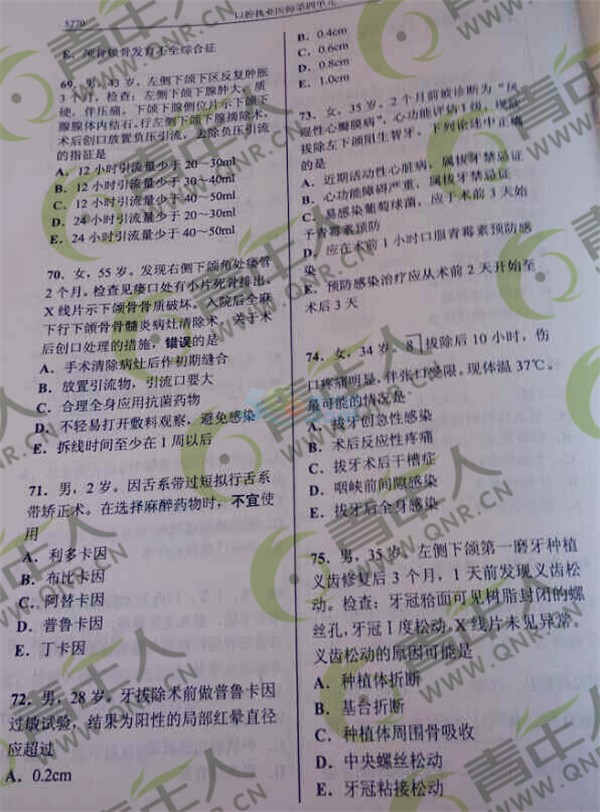 5270
口腔执业医师第四单元
E．颅骨锁骨发育不全综合征
69．男，43岁。左侧下颌下区反复肿胀
3个月。检查：左侧下颌下腺肿大，质
硬，伴压痛。下颌下腺侧位片示下颌下
腺腺体内结石。行左侧下颌下腺摘除术，
术后创口放置负压引流，去除负压引流
的指征是
A．12小时引流量少于20～30ml
B．12小时引流量少于30～40ml
C．12小时引流量少于40～50ml
D．24小时引流量少于20～30ml
E．24小时引流量少于40～50ml
70．女，55岁。发现右侧下颌角处瘘管
2个月，检查见瘘口处有小片死骨排出，
X线片示下颌骨骨质破坏。入院后全麻
下行下颌骨骨髓炎病灶清除术，关于术
后创口处理的措施，错误的是
A．手术清除病灶后作初期缝合
B．放置引流物，引流口要大
C．合理全身应用抗菌药物
D．不轻易打开敷料观察，避免感染
E．拆线时间至少在1周以后
71．男，2岁。因舌系带过短拟行舌系
带矫正术。在选择麻醉药物时，不宜使
用
A．利多卡因
B．布比卡因
C．阿替卡因
D．普鲁卡因
E．丁卡因
72．男，28岁。牙拔除术前做普鲁卡因
过敏试验，结果为阳性的局部红晕直径
应超过
A．0.2cm
B．0.4cm
C．0.6cm
D．0.8cm
E．1.0cm
73．女，35岁。2个月前被诊断为“风
湿性心瓣膜病”，心功能评估Ⅰ级，现欲
拔除左下颌阻生智牙，下列论述中正确
的是
A．近期活动性心脏病，属拔牙禁忌证
B．心功能障碍严重，属拔牙禁忌证
C．易感染葡萄球菌，应于术前3天始
予青霉素预防
D．应在术前1小时口服青霉素预防感
染
E．预防感染治疗应从术前2天开始至
术后3天
74．女，34岁。8⏋拔除后10小时，伤
口疼痛明显，伴张口受限。现体温37℃。
最可能的情况是
A．拔牙创急性感染
B．术后反应性疼痛
C．拔牙术后干槽症
D．咽峡前间隙感染
E．拔牙后全身感染
75．男，35岁。左侧下颌第一磨牙种植
义齿修复后3个月，1天前发现义齿松
动。检查：牙冠𬌗面可见树脂封闭的螺
丝孔，牙冠Ⅰ度松动，X线片未见异常。
义齿松动的原因可能是
A．种植体折断
B．基台折断
C．种植体周围骨吸收
D．中央螺丝松动
E．牙冠粘接松动
青年人
WWW.QNR.CN